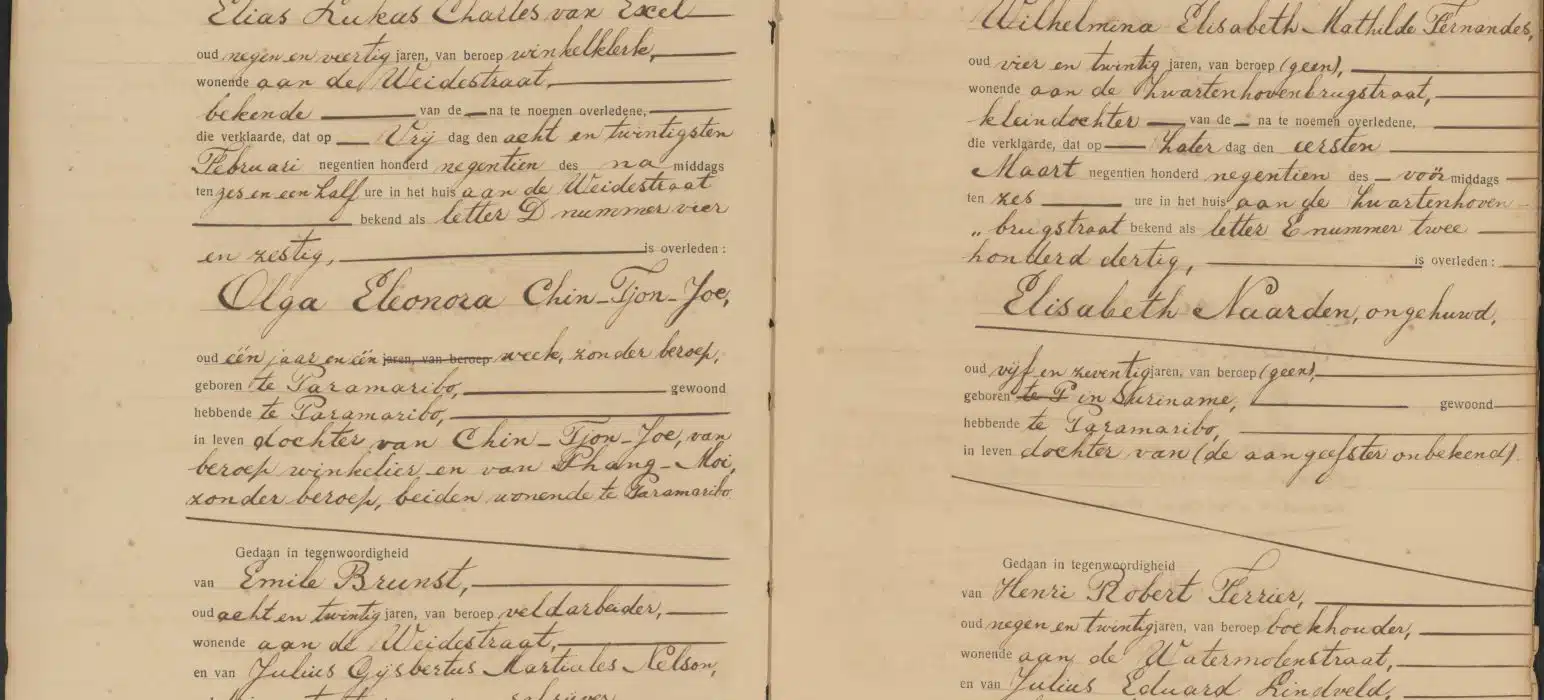 Elias Lukas Charles van Excel
oud negen en veertig jaren, van beroep winkelklerk,
wonende aan de Weidestraat,
bekende van de na te noemen overledene,
die verklaarde, dat op Vrij dag den acht en twintigsten
Februari negentien honderd negentien des na middags
ten zes en een half ure in het huis aan de Weidestraat
bekend als letter D nummer vier
en zestig, is overleden:
Olga Eleonora Chin-Tjon-Joe,
oud één jaar en één jaren, van beroep week, zonder beroep,
geboren te Paramaribo, gewoond
hebbende te Paramaribo,
in leven dochter van Chin-Tjon-Joe, van
beroep winkelier en van Phang-Moi,
zonder beroep, beiden wonende te Paramaribo
Gedaan in tegenwoordigheid
van Emile Brunst,
oud acht en twintig jaren, van beroep veldarbeider,
wonende aan de Weidestraat,
en van Julius Gijsbertus Martiales Nelson,
schrijver
Wilhelmina Elisabeth Mathilde Fernandes,
oud vier en twintig jaren, van beroep (geen),
wonende aan de Zwartenhovenbrugstraat,
kleindochter van de na te noemen overledene,
die verklaarde, dat op Zater dag den eersten
Maart negentien honderd negentien des voor middags
ten zes ure in het huis aan de Zwartenhoven-
„ brugstraat bekend als letter E nummer twee
honderd dertig, is overleden:
Elisabeth Naarden, ongehuwd,
oud vijf en zeventig jaren, van beroep (geen),
geboren te P in Suriname, gewoond
hebbende te Paramaribo,
in leven dochter van (de aangeefster onbekend).
Gedaan in tegenwoordigheid
van Henri Robert Ferrier,
oud negen en twintig jaren, van beroep boekhouder,
wonende aan de Watermolenstraat,
en van Julius Eduard Lindveld,